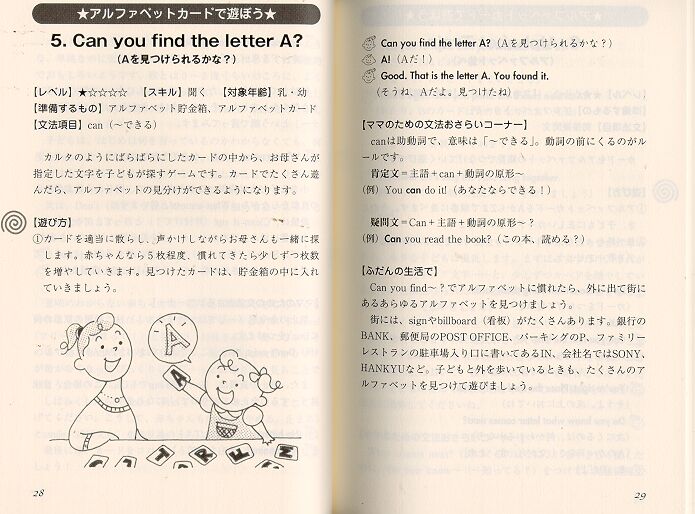 ★アルファベットカードで遊ぼう★
5. Can you find the letter A?
(Aを見つけられるかな？)
【レベル】★☆☆☆☆ 【スキル】聞く 【対象年齢】乳・幼
【準備するもの】アルファベット貯金箱、アルファベットカード
【文法項目】can（〜できる）
カルタのようにばらばらにしたカードの中から、お母さんが
指定した文字を子どもが探すゲームです。カードでたくさん遊
んだら、アルファベットの見分けができるようになります。
【遊び方】
①カードを適当に散らし、声かけしながらお母さんも一緒に探
します。赤ちゃんなら５枚程度、慣れてきたら少しずつ枚数
を増やしていきます。見つけたカードは、貯金箱の中に入れ
ていきましょう。
A
A
J T R F M
28
Can you find the letter A?（Aを見つけられるかな？）
A!（Aだ！）
Good. That is the letter A. You found it.
（そうね、Aだよ。見つけたね）
【ママのための文法おさらいコーナー】
canは助動詞で、意味は「〜できる」。動詞の前にくるのがル
ールです。
肯定文＝主語＋can＋動詞の原形〜
（例）You can do it!（あなたならできる！）
疑問文＝Can＋主語＋動詞の原形〜？
（例）Can you read the book?（この本、読める？）
【ふだんの生活で】
Can you find〜？でアルファベットに慣れたら、外に出て街に
あるあらゆるアルファベットを見つけましょう。
街には、signやbillboard（看板）がたくさんあります。銀行の
BANK、郵便局のPOST OFFICE、パーキングのP、ファミリー
レストランの駐車場入り口に書いてあるIN、会社名ではSONY、
HANKYUなど。子どもと外を歩いているときも、たくさんのア
ルファベットを見つけて遊びましょう。
29